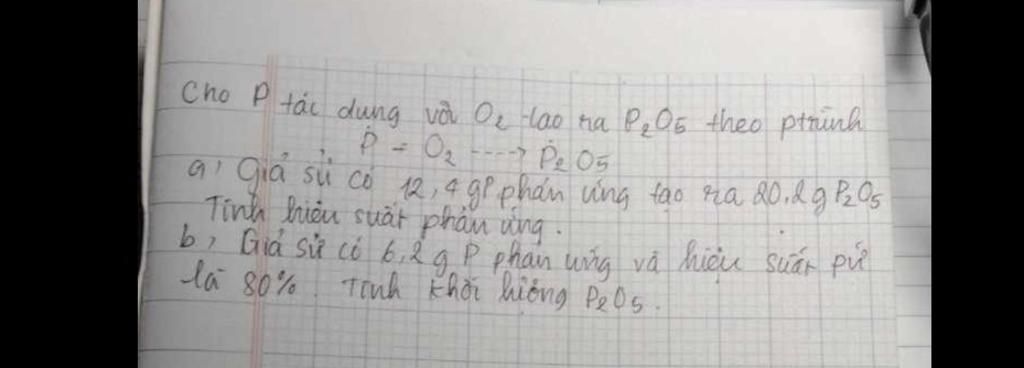 Cho P tác dụng với O2 tạo ra P2O5 theo ptrình
P + O2 ----> P2O5
a, Giả sử có 12,4 gP phản ứng tạo ra 20,2g P2O5
Tính hiệu suất phản ứng.
b, Giả sử có 6,2 g P phản ứng và hiệu suất pứ
là 80%. Tính khối lượng P2O5.